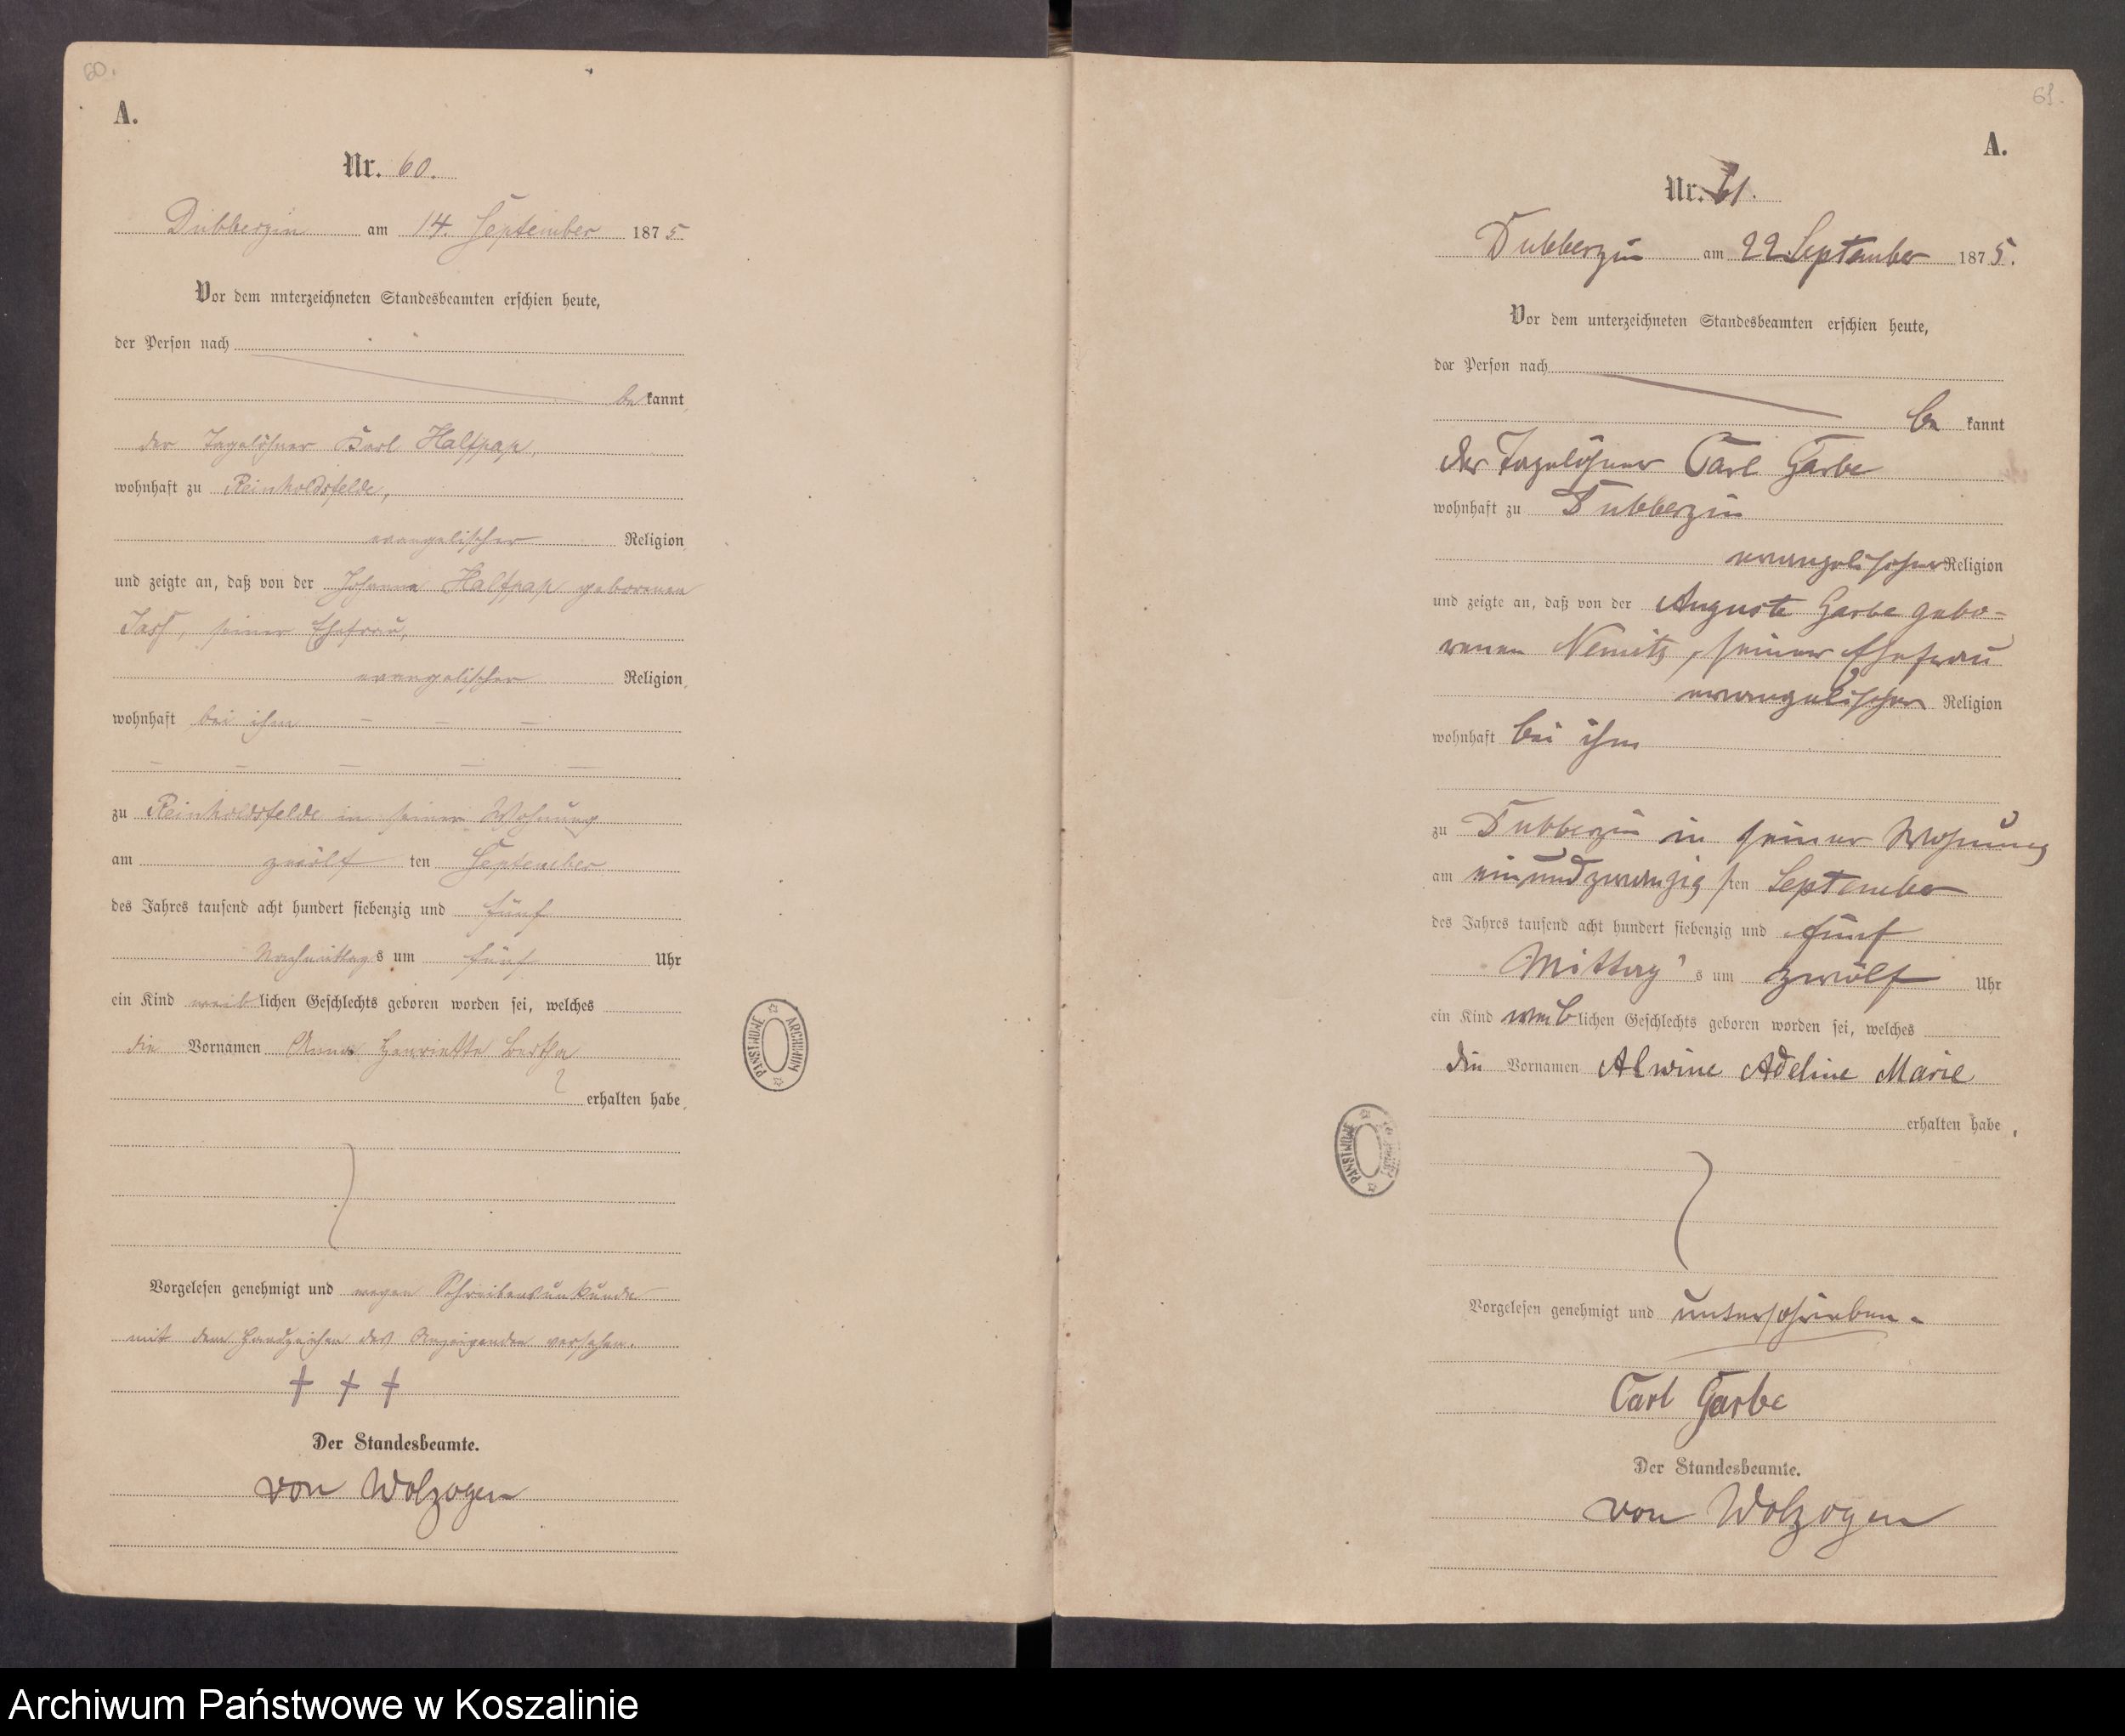 60.
A.
Nr. 60.
Dubberzin am 14. September 1875
Vor dem unterzeichneten Standesbeamten erschien heute,
der Person nach
be kannt,
der Tagelöhner Karl Halfpap,
wohnhaft zu Reinholdsfelde,
evangelischer Religion,
und zeigte an, daß von der Johanna Halfpap geborenen
seiner Ehefrau,
evangelischer Religion,
wohnhaft bei ihm
zu Reinholdsfelde in seiner Wohnung
am zwölf ten September
des Jahres tausend acht hundert siebenzig und fünf
Nachmittags um fünf Uhr
ein Kind weiblichen Geschlechts geboren worden sei, welches
die Vornamen Anna Henriette Bertha
erhalten habe,
Vorgelesen genehmigt und wegen Schreibensunkunde
mit dem Handzeichen des Anzeigenden versehen.
+ + +
Der Standesbeamte.
von Wolzogen
PAŃSTWOWE ARCHIWUM
61.
A.
Nr. 61.
Dubberzin am 22 September 1875.
Vor dem unterzeichneten Standesbeamten erschien heute,
der Person nach
be kannt
der Tagelöhner Carl Garbe
wohnhaft zu Dubberzin
evangelischer Religion
und zeigte an, daß von der Auguste Garbe gebo=
renen Nemitz, seiner Ehefrau
evangelischer Religion
wohnhaft bei ihm
zu Dubberzin in seiner Wohnung
am einundzwanzigsten September
des Jahres tausend acht hundert siebenzig und fünf
Mittags um zwölf Uhr
ein Kind weiblichen Geschlechts geboren worden sei, welches
die Vornamen Alwine Adeline Marie
erhalten habe,
Vorgelesen genehmigt und unterschrieben.
Carl Garbe
Der Standesbeamte.
von Wolzogen
PAŃSTWOWE
Archiwum Państwowe w Koszalinie